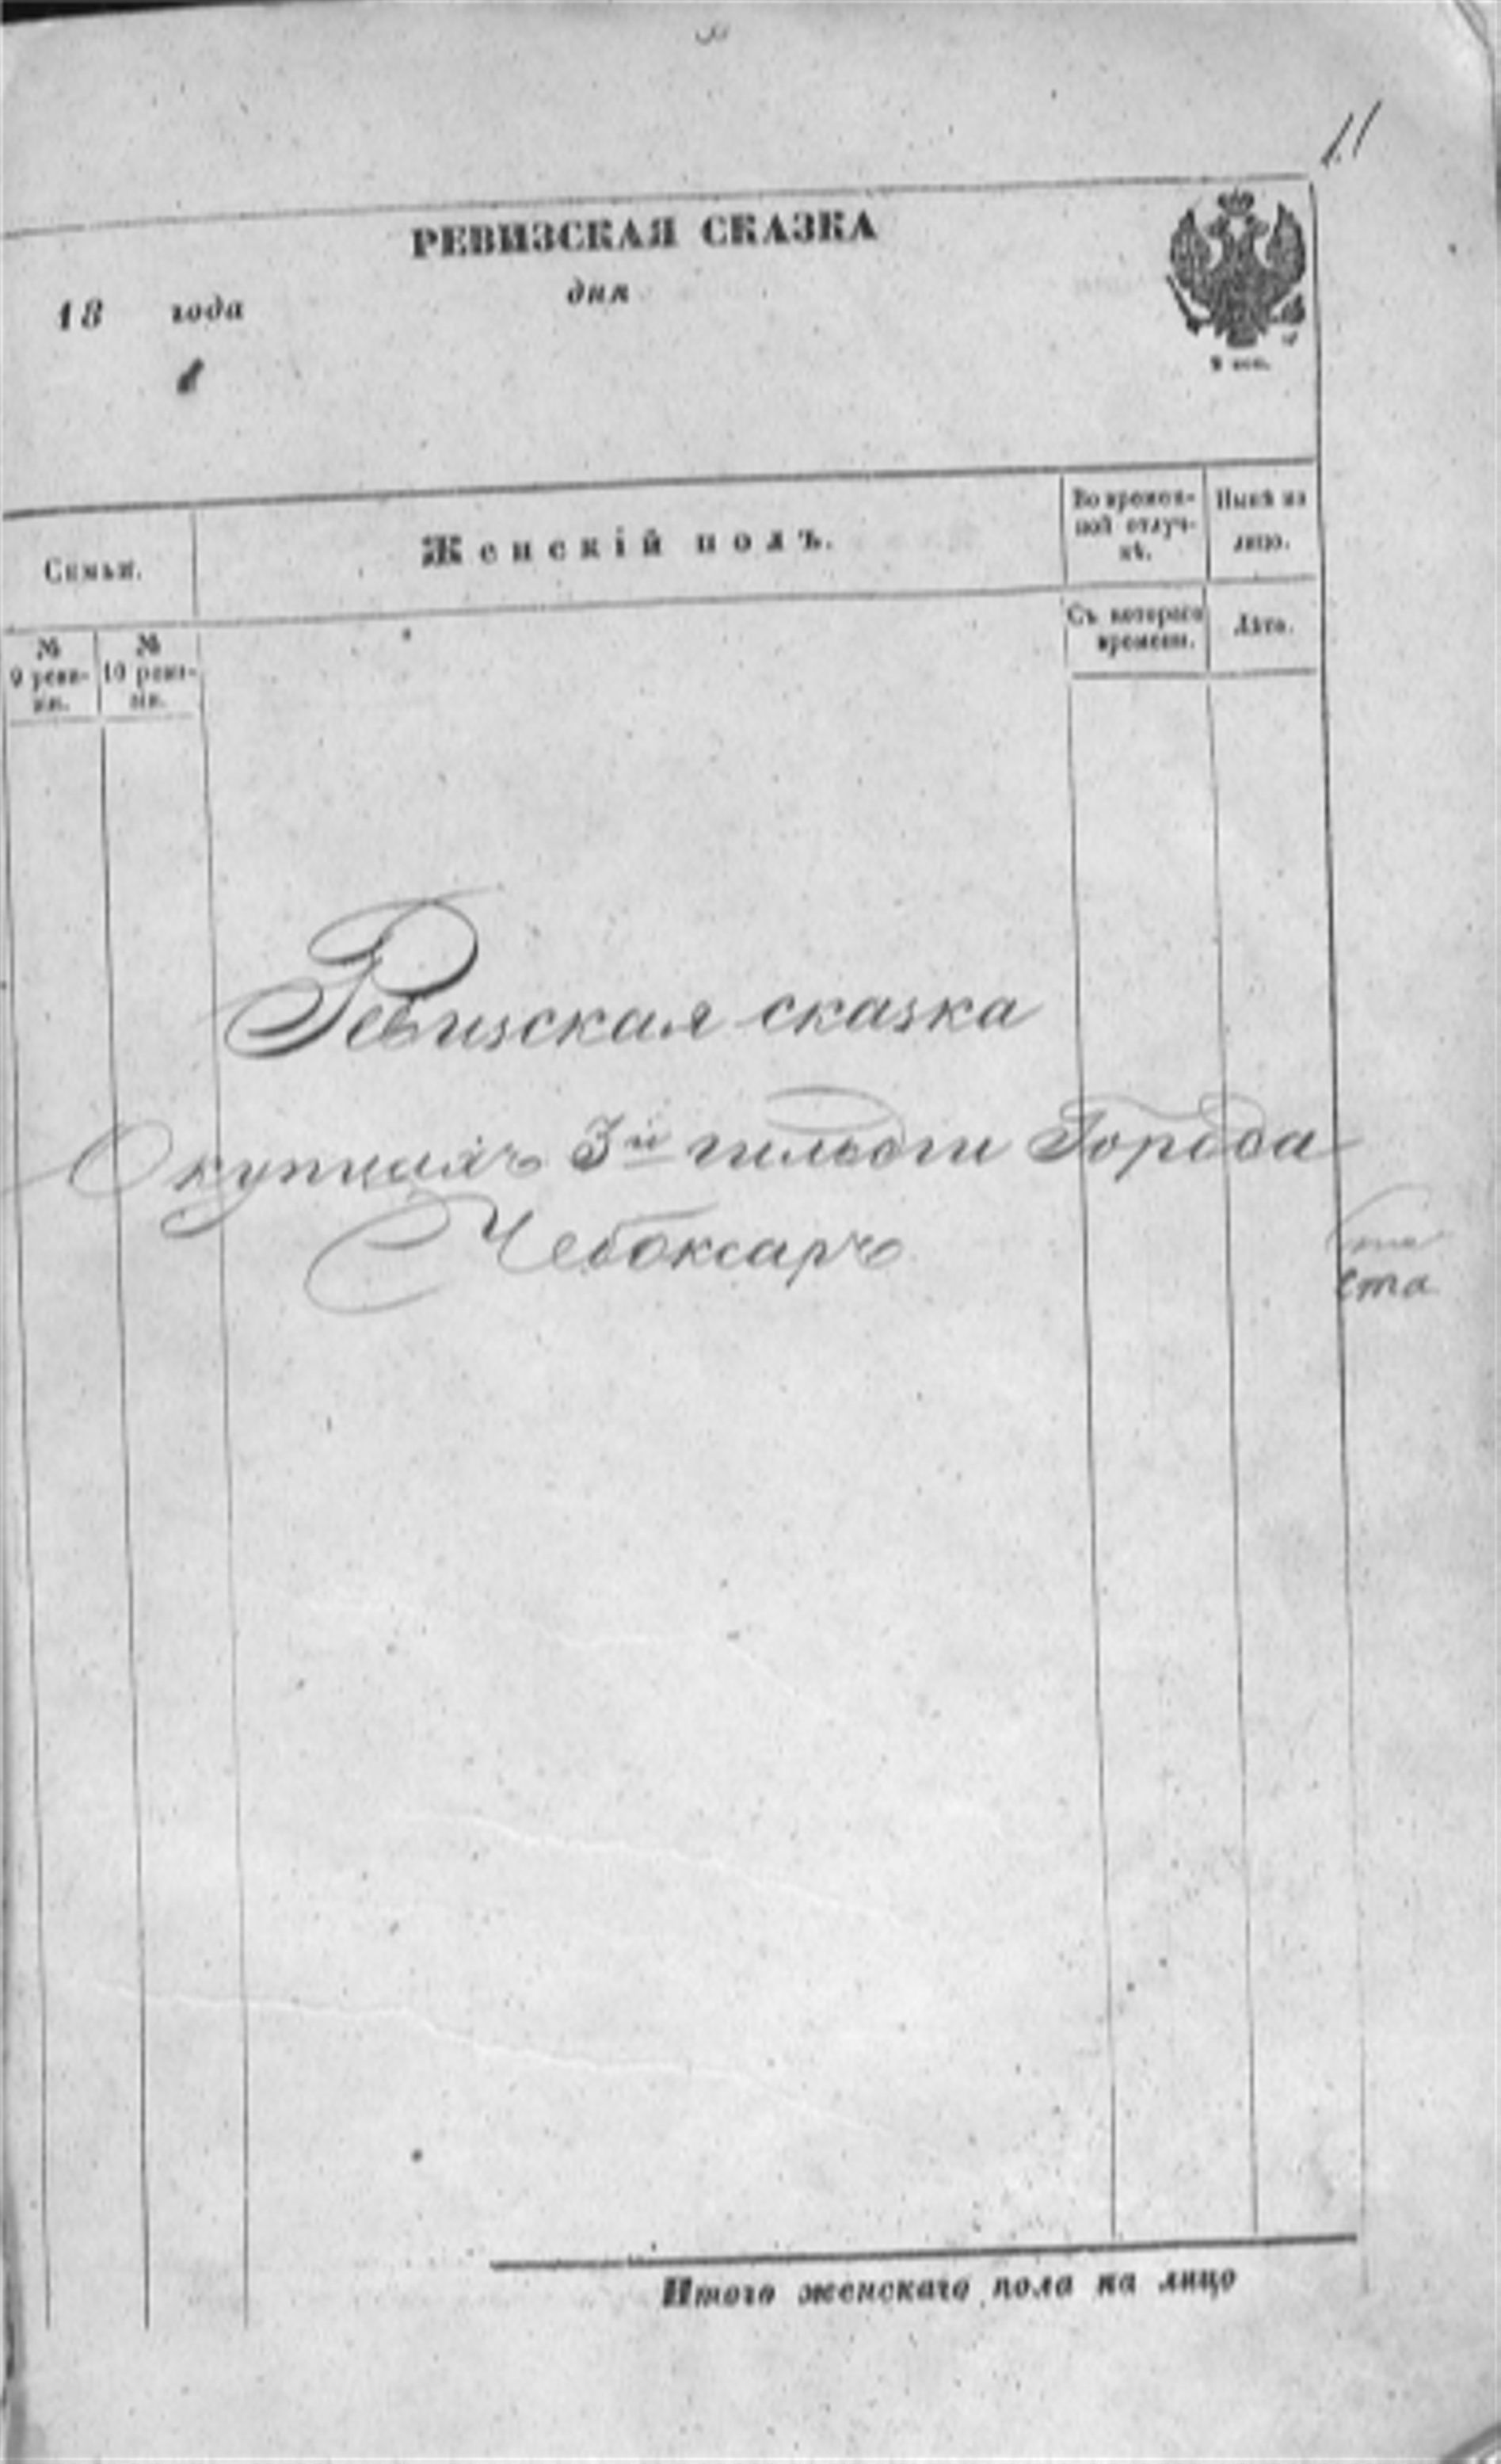 11
РЕВИЗСКАЯ СКАЗКА
18 года дня
Семьи. Женскій полъ. Во времен-ной отлуч-кѣ. Нынѣ на лицо.
№ 9 реви-зіи. № 10 реви-зіи. Съ котораго времени. Лѣта.
Ревизская сказка
О купцахъ 3й гильдіи Города
Чебоксаръ
ста
Итого женскаго пола на лицо